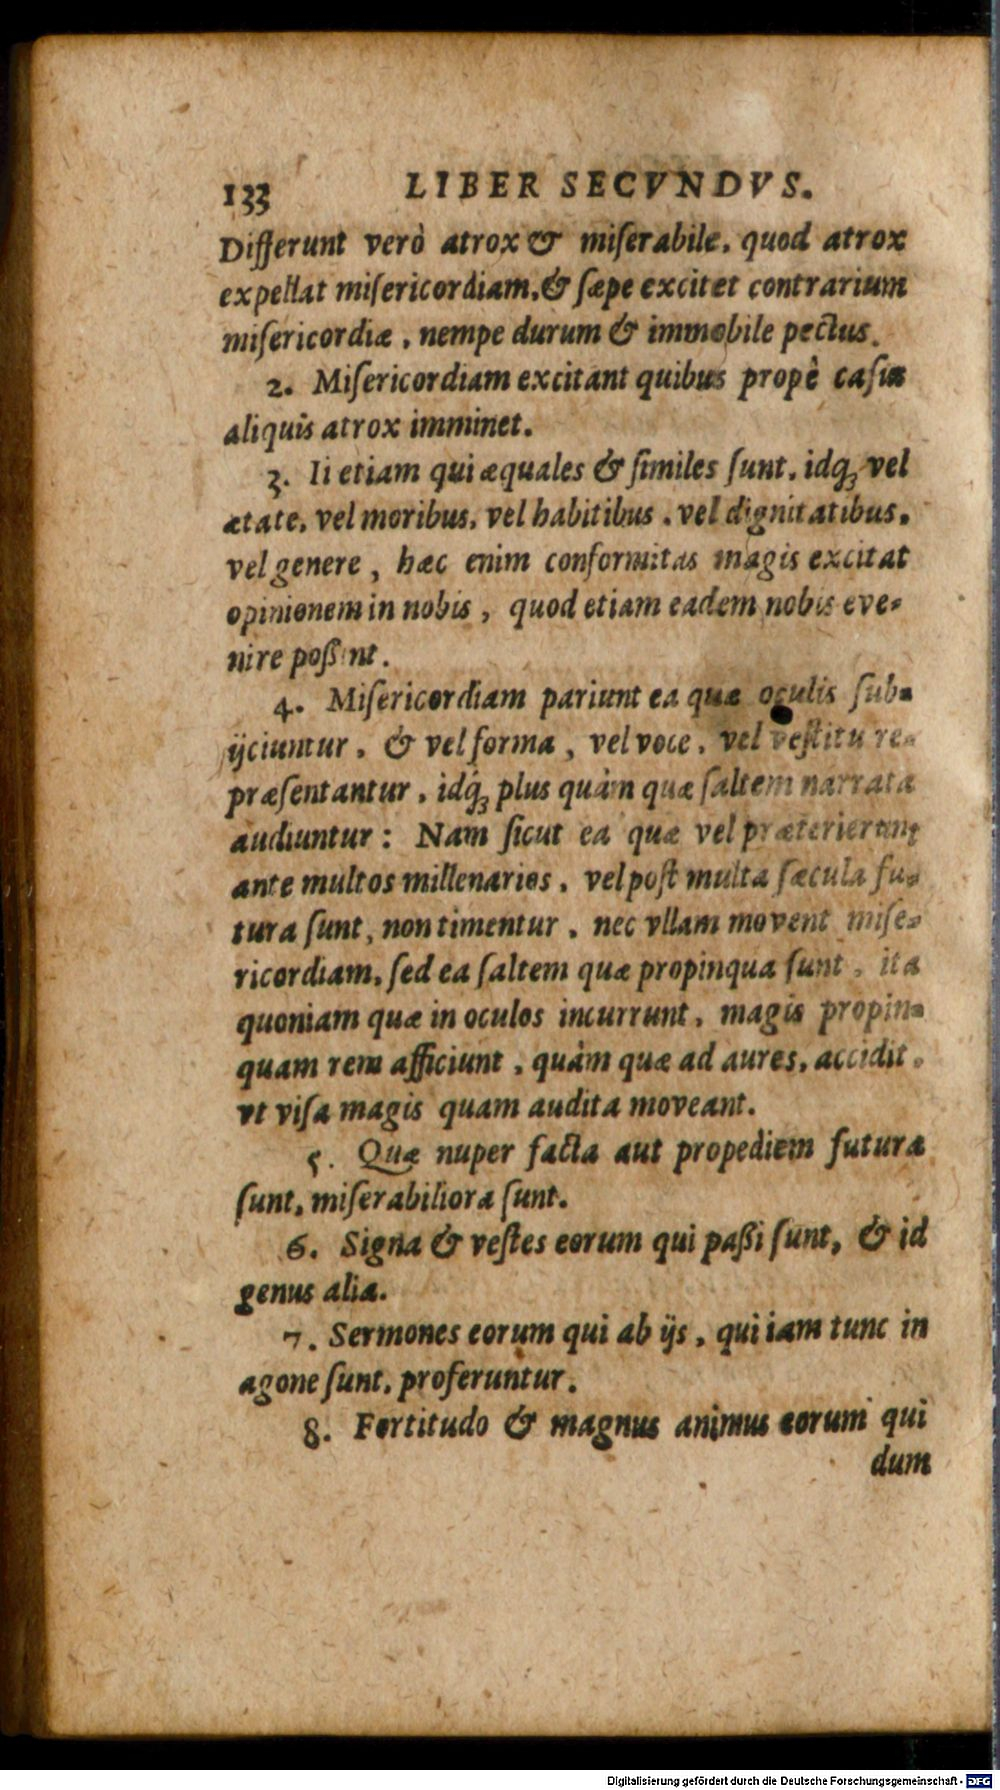 133 LIBER SECVNDVS.
Differunt verò atrox & miſerabile, quod atrox
expellat miſericordiam, & ſæpe excitet contrarium
miſericordiæ, nempe durum & immobile pectus.
2. Miſericordiam excitant quibus propè caſus
aliquis atrox imminet.
3. Ii etiam qui æquales & ſimiles ſunt, idq́ꝫ vel
ætate, vel moribus, vel habitibus, vel dignitatibus,
vel genere, hæc enim conformitas magis excitat
opinionem in nobis, quod etiam eadem nobis eve-
nire poßint.
4. Miſericordiam pariunt ea quæ oculis ſub-
ijciuntur, & vel forma, vel voce, vel veſtitu re-
præſentantur, idq́ꝫ plus quàm quæ ſaltem narrata
audiuntur: Nam ſicut ea quæ vel præterierunt
ante multos millenarios, vel poſt multa ſæcula fu-
tura ſunt, non timentur, nec vllam movent miſe-
ricordiam, ſed ea ſaltem quæ propinqua ſunt, ita
quoniam quæ in oculos incurrunt, magis propin-
quam rem afficiunt, quàm quæ ad aures, accidit,
vt viſa magis quam audita moveant.
5. Quæ nuper facta aut propediem futura
ſunt, miſerabiliora ſunt.
6. Signa & veſtes eorum qui paßi ſunt, & id
genus alia.
7. Sermones eorum qui ab ijs, qui iam tunc in
agone ſunt, proferuntur.
8. Fortitudo & magnus animus eorum qui
dum
Digitalisierung gefördert durch die Deutsche Forschungsgemeinschaft - DFG